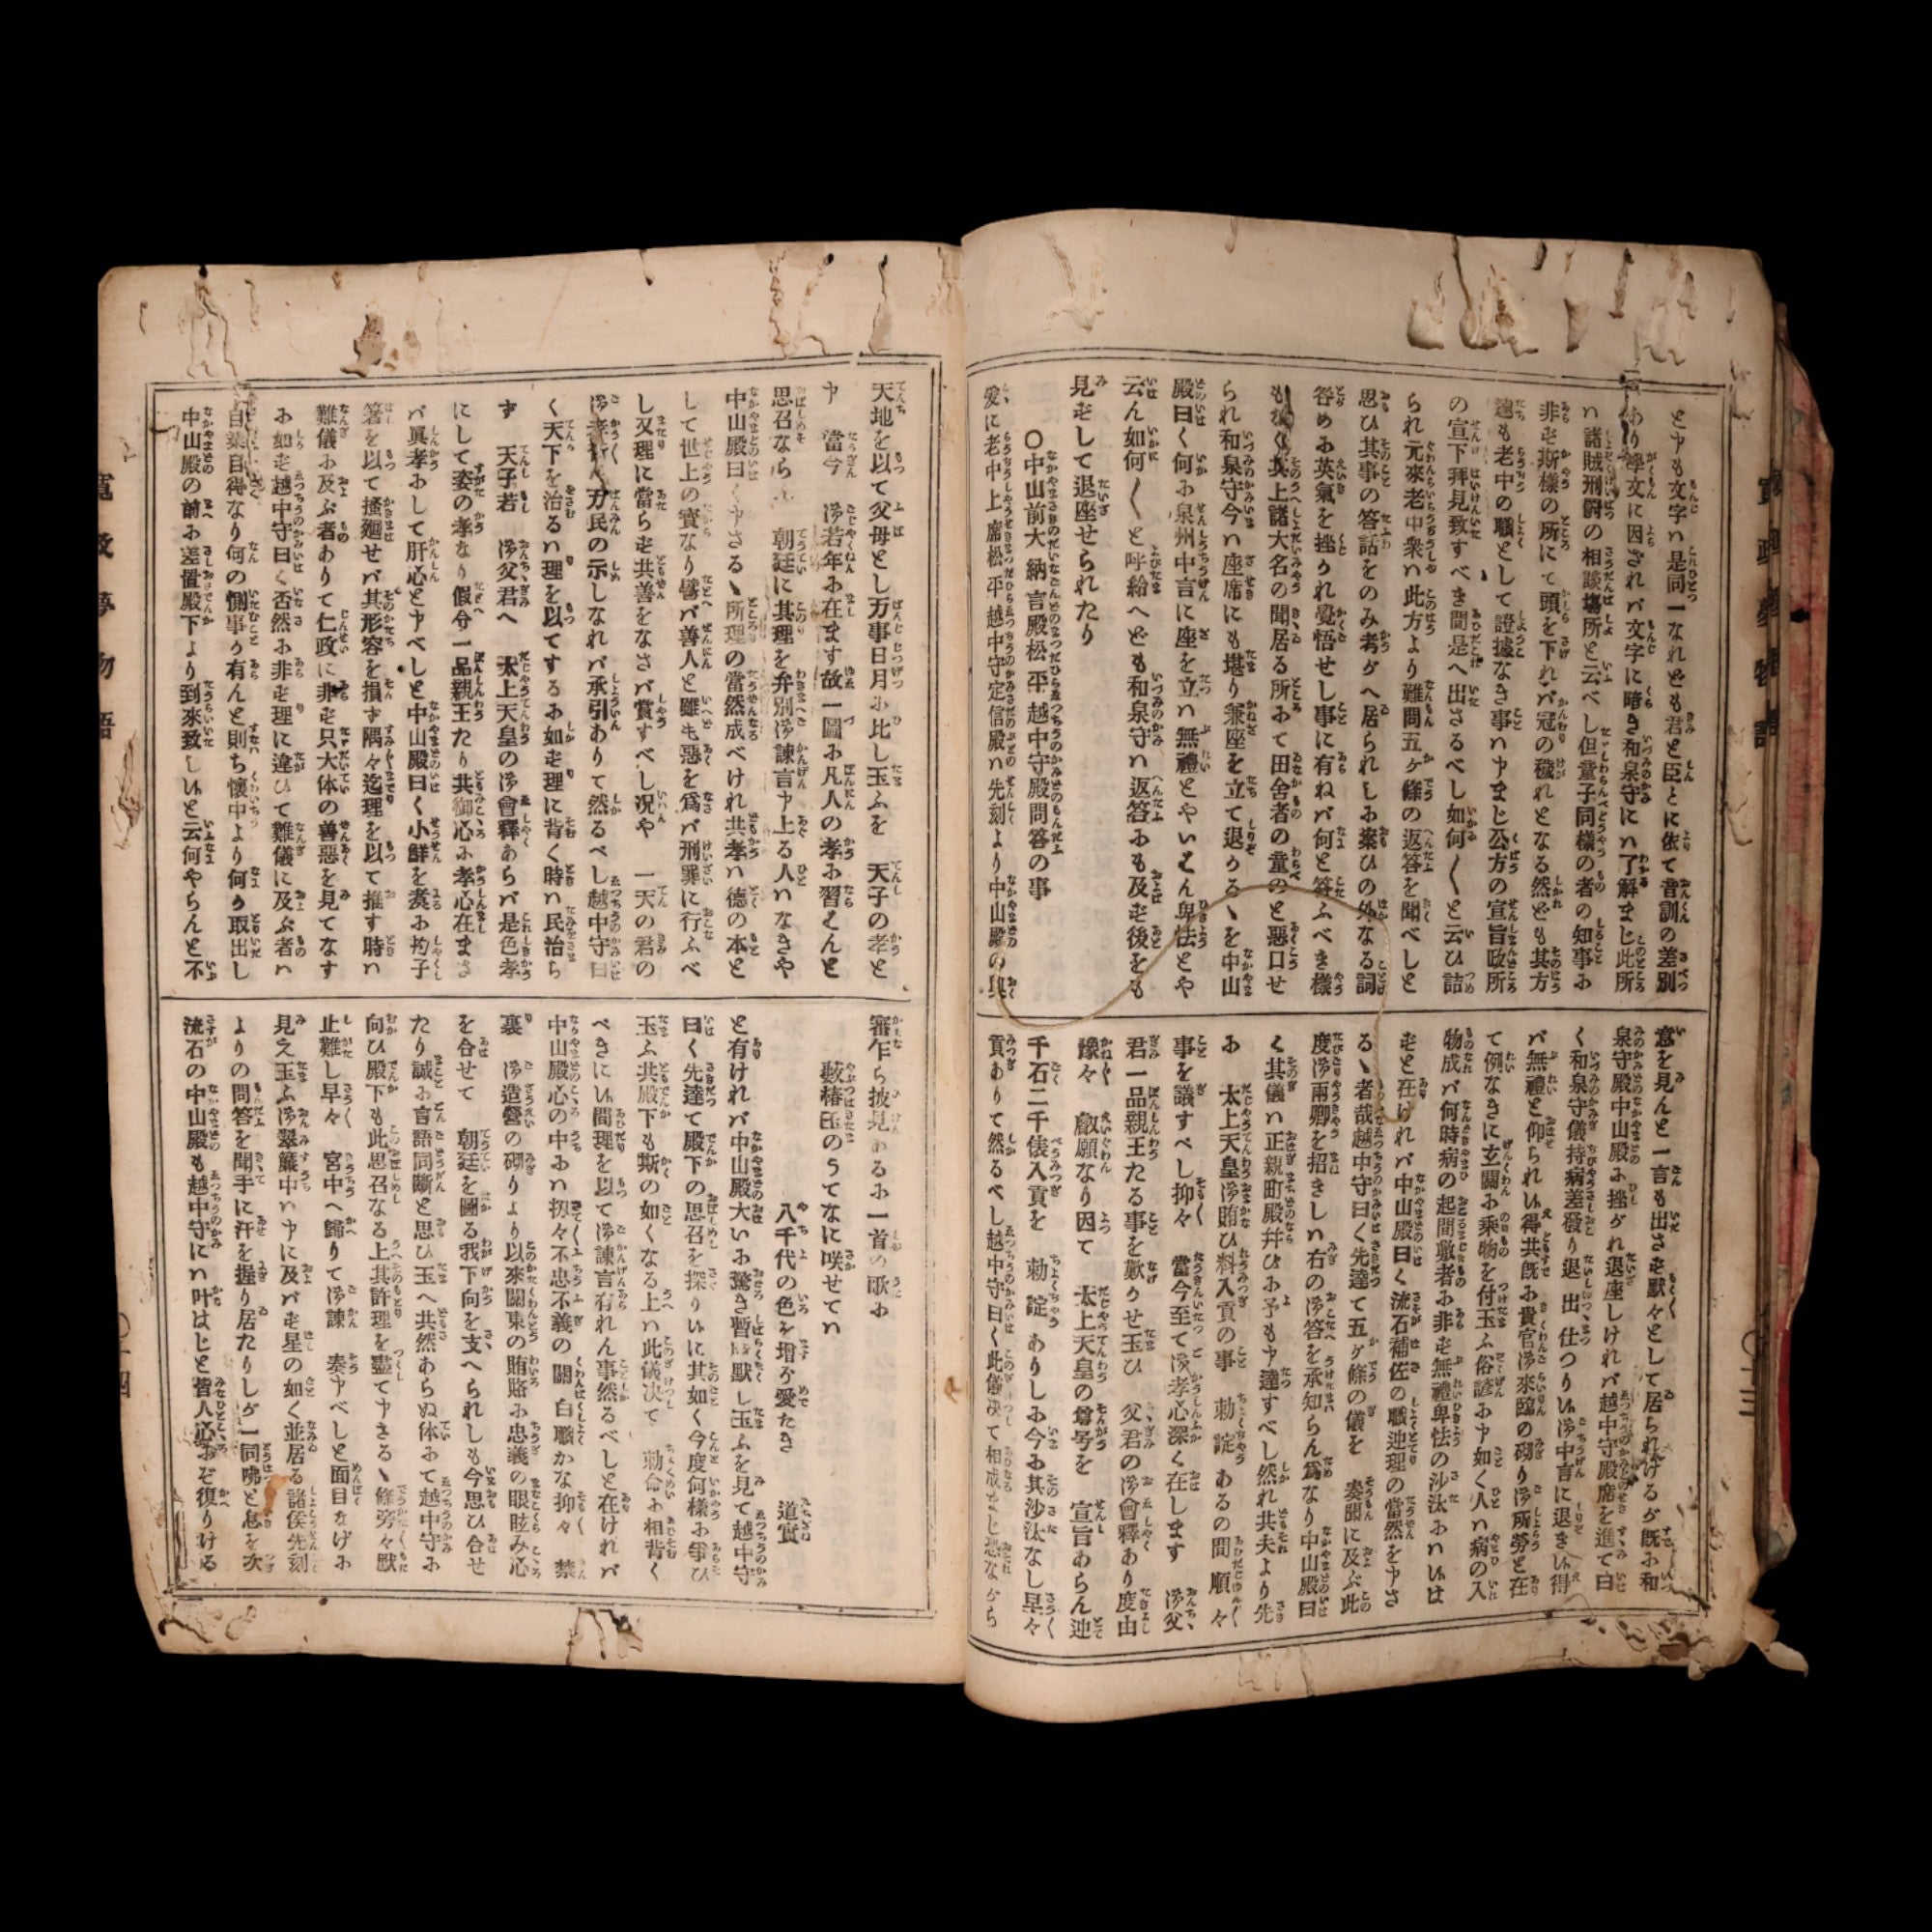 とヤも文字ハ是同一なれども君と臣とに依て音訓の差別
あり學文に因されバ文字に暗き和泉守にハ了解まじ此所
ハ諸賊刑罸の相談塲所と云べし但童子同樣の者の知事に
非ず斯樣の所にて頭を下れバ冠の穢れとなる然ども其方
達も老中の職として證據なき事ハヤまじ公方の宣旨政所
の宣下拜見致すべき間是へ出さるべし如何〱と云ひ詰
られ元來老中衆ハ此方より難問五ヶ條の返答を聞べしと
思ひ其事の答話をのみ考がへ居られしに案ひの外なる詞
咎めに英氣を挫かれ覺悟せし事に有ねバ何と答ふべき樣
もなく其上諸大名の聞居る所にて田舍者の童のと惡口せ
られ和泉守今ハ座席にも堪り兼座を立て退かるヽを中山
殿曰く何に泉州中言に座を立ハ無禮とやいはん卑怯とや
云ん如何〱と呼給へども和泉守ハ返答にも及ず後をも
見ずして退座せられたり
〇中山前大納言殿松平越中守殿問答の事
爰に老中上席松平越中守定信殿ハ先刻より中山殿の與
意を見んと一言も出さず默々として居られけるが既に和
泉守殿中山殿に挫がれ退座しけれバ越中守殿席を進て曰
く和泉守儀持病差發り退出仕つりい御中言に退きい得
バ無禮と仰られい得共既に貴官御來臨の砌り御所勞と在
て例なきに玄關に乘物を付玉ふ俗諺にヤ如く人ハ病の入
物成バ何時病の起間敷者に非ず無禮卑怯の沙汰にハいは
ずと在けれバ中山殿曰く流石補佐の職迚理の當然をヤさ
るヽ者哉越中守曰く先達て五ヶ條の儀を 奏聞に及ぶ此
度御兩卿を招きしハ右の御答を承知らん爲なり中山殿曰
く其儀ハ正親町殿并ひに予もヤ達すべし然れ共夫より先
に 太上天皇御賄ひ料入貢の事 勅諚あるの間順々
事を議すべし抑々 當今至て御孝心深く在します 御父
君一品親王たる事を歎かせ玉ひ 父君の御會釋あり度由
豫々 叡願なり因て 太上天皇の尊号を 宣旨あらん迚
千石二千俵入貢を 勅諚ありしに今に其沙汰なし早々
貢ありて然るべし越中守曰く此儀决て相成まじ恐ながら
天地を以て父母とし万事日月に比し玉ふを 天子の孝と
ヤ 當今 御若年に在ます故一圖に凡人の孝に習はんと
思召なられ 朝廷に其理を弁別御諫言ヤ上る人ハなきや
中山殿曰くヤさるヽ所理の當然成べけれ共孝ハ德の本と
して世上の寳なり譬バ善人と雖も惡を爲バ刑罪に行ふべ
し又理に當らず共善をなさバ賞すべし况や 一天の君の
御孝行ハ万民の示しなれバ承引ありて然るべし越中守曰
く天下を治るハ理を以てするに如ず理に背く時ハ民治ら
ず 天子若 御父君へ 太上天皇の御會釋あらバ是色孝
にして姿の孝なり假令一品親王たり共御心に孝心在まさ
バ眞孝にして肝心とヤべしと中山殿曰く小鮮を煑に杓子
箸を以て掻廻せバ其形容を損ず隅々迄理を以て推す時ハ
難儀に及ぶ者ありて仁政に非ず只大体の善惡を見てなす
に如ず越中守曰く否然に非ず理に違ひて難儀に及ぶ者ハ
自業自得なり何の惻事か有んと則ち懷中より何か取出し
中山殿の前に差置殿下より到來致しいと云何やらんと不
審乍ら披見あるに一首の歌に
藪椿玉のうてなに咲せてハ
八千代の色を增が愛たき 道實
と有けれバ中山殿大いに驚き暫時默し玉ふを見て越中守
曰く先達て殿下の思召を探りいに其如く今度何樣に爭ひ
玉ふ共殿下も斯の如くなる上ハ此儀决て 勅命に相背く
べきにい間理を以て御諫言有れん事然るべしと在けれバ
中山殿心の中にハ扨々不忠不義の關白職かな抑々 禁
裏 御造營の砌りより以來關東の賄賂に忠義の眼眩み心
を合せて 朝廷を圖る我下向を支へられしも今思ひ合せ
たり誠に言語同斷と思ひ玉へ共然あらぬ体にて越中守に
向ひ殿下も此思召なる上其許理を盡てヤさるヽ條旁々默
止難し早々 宮中へ歸りて御諫 奏ヤべしと面目なげに
見え玉ふ御翠簾中ハヤに及バず星の如く並居る諸侯先刻
よりの問答を聞手に汗を握り居たりしが一同咈と息を次
流石の中山殿も越中守にハ叶はじと皆人心にぞ復りける
寛政夢物語
〇十三
〇十四